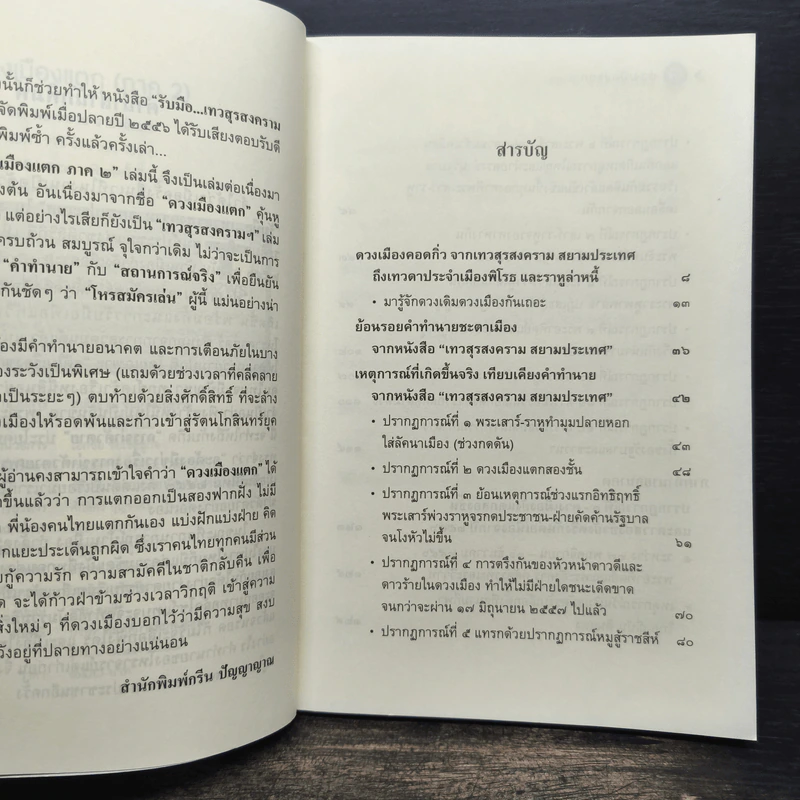 งนั้นก็ช่วยทำให้ หนังสือ “รับมือ...เทวสุรสงคราม
จัดพิมพ์เมื่อปลายปี ๒๕๕๖ ได้รับเสียงตอบรับดี
พิมพ์ซ้ำ ครั้งแล้วครั้งเล่า...
เมืองแตก ภาค ๒” เล่มนี้ จึงเป็นเล่มต่อเนื่องมา
งต้น อันเนื่องมาจากชื่อ “ดวงเมืองแตก” คุ้นหู
แต่อย่างไรเสียก็ยังเป็น “เทวสุรสงครามฯ” เล่ม
ครบถ้วน สมบูรณ์ จุใจกว่าเดิม ไม่ว่าจะเป็นการ
“คำทำนาย” กับ “สถานการณ์จริง” เพื่อยืนยัน
กันชัดๆ ว่า “โหรสมัครเล่น” ผู้นี้ แม่นอย่างน่า
องมีคำทำนายอนาคต และการเตือนภัยในบาง
องระวังเป็นพิเศษ (แถมด้วยช่วงเวลาที่คลี่คลาย
อเป็นระยะๆ) ตบท้ายด้วยสิ่งศักดิ์สิทธิ์ ที่จะล้าง
งเมืองให้รอดพ้นและก้าวเข้าสู่รัตนโกสินทร์ยุค
ผู้อ่านคงสามารถเข้าใจคำว่า “ดวงเมืองแตก” ได้
าขึ้นแล้วว่า การแตกออกเป็นสองฟากฝั่ง ไม่มี
พี่น้องคนไทยแตกกันเอง แบ่งฝักแบ่งฝ่าย คิด
กแยะประเด็นถูกผิด ซึ่งเราคนไทยทุกคนมีส่วน
ยกู้ความรัก ความสามัคคีในชาติกลับคืน เพื่อ
ด จะได้ก้าวฝ่าข้ามช่วงเวลาวิกฤติ เข้าสู่ความ
สิ่งใหม่ๆ ที่ดวงเมืองบอกไว้ว่ามีความสุข สงบ
วังอยู่ที่ปลายทางอย่างแน่นอน
สำนักพิมพ์กรีน ปัญญาญาณ
สารบัญ
ดวงเมืองคอดกิ่ว จากเทวสุรสงคราม สยามประเทศ
ถึงเทวตาประจำเมืองพิโรธ และราหูล่าหนี้ ๘
• มารู้จักดวงเดิมดวงเมืองกันเถอะ ๑๓
ย้อนรอยคำทำนายชะตาเมือง
จากหนังสือ “เทวสุรสงคราม สยามประเทศ” ๓๖
เหตุการณ์ที่เกิดขึ้นจริง เทียบเคียงคำทำนาย
จากหนังสือ “เทวสุรสงคราม สยามประเทศ” ๔๒
• ปรากฏการณ์ที่ ๑ พระเสาร์-ราหูทำมุมปลายหอก
ใส่ลัคนาเมือง (ช่วงกดดัน) ๔๓
• ปรากฏการณ์ที่ ๒ ดวงเมืองแตกสองชั้น ๔๘
• ปรากฏการณ์ที่ ๓ ย้อนเหตุการณ์ช่วงแรกอิทธิฤทธิ์
พระเสาร์พ่วงราหูจรกดประชาชน-ฝ่ายคัดค้านรัฐบาล
จนโงหัวไม่ขึ้น ๖๑
• ปรากฏการณ์ที่ ๔ การตรึงกันของหัวหน้าดาวดีและ
ดาวร้ายในดวงเมือง ทำให้ไม่มีฝ่ายใดชนะเด็ดขาด
จนกว่าจะผ่าน ๑๗ มิถุนายน ๒๕๕๗ ไปแล้ว ๗๐
• ปรากฏการณ์ที่ ๕ แทรกด้วยปรากฏการณ์หมูสู้ราชสีห์ ๘๐